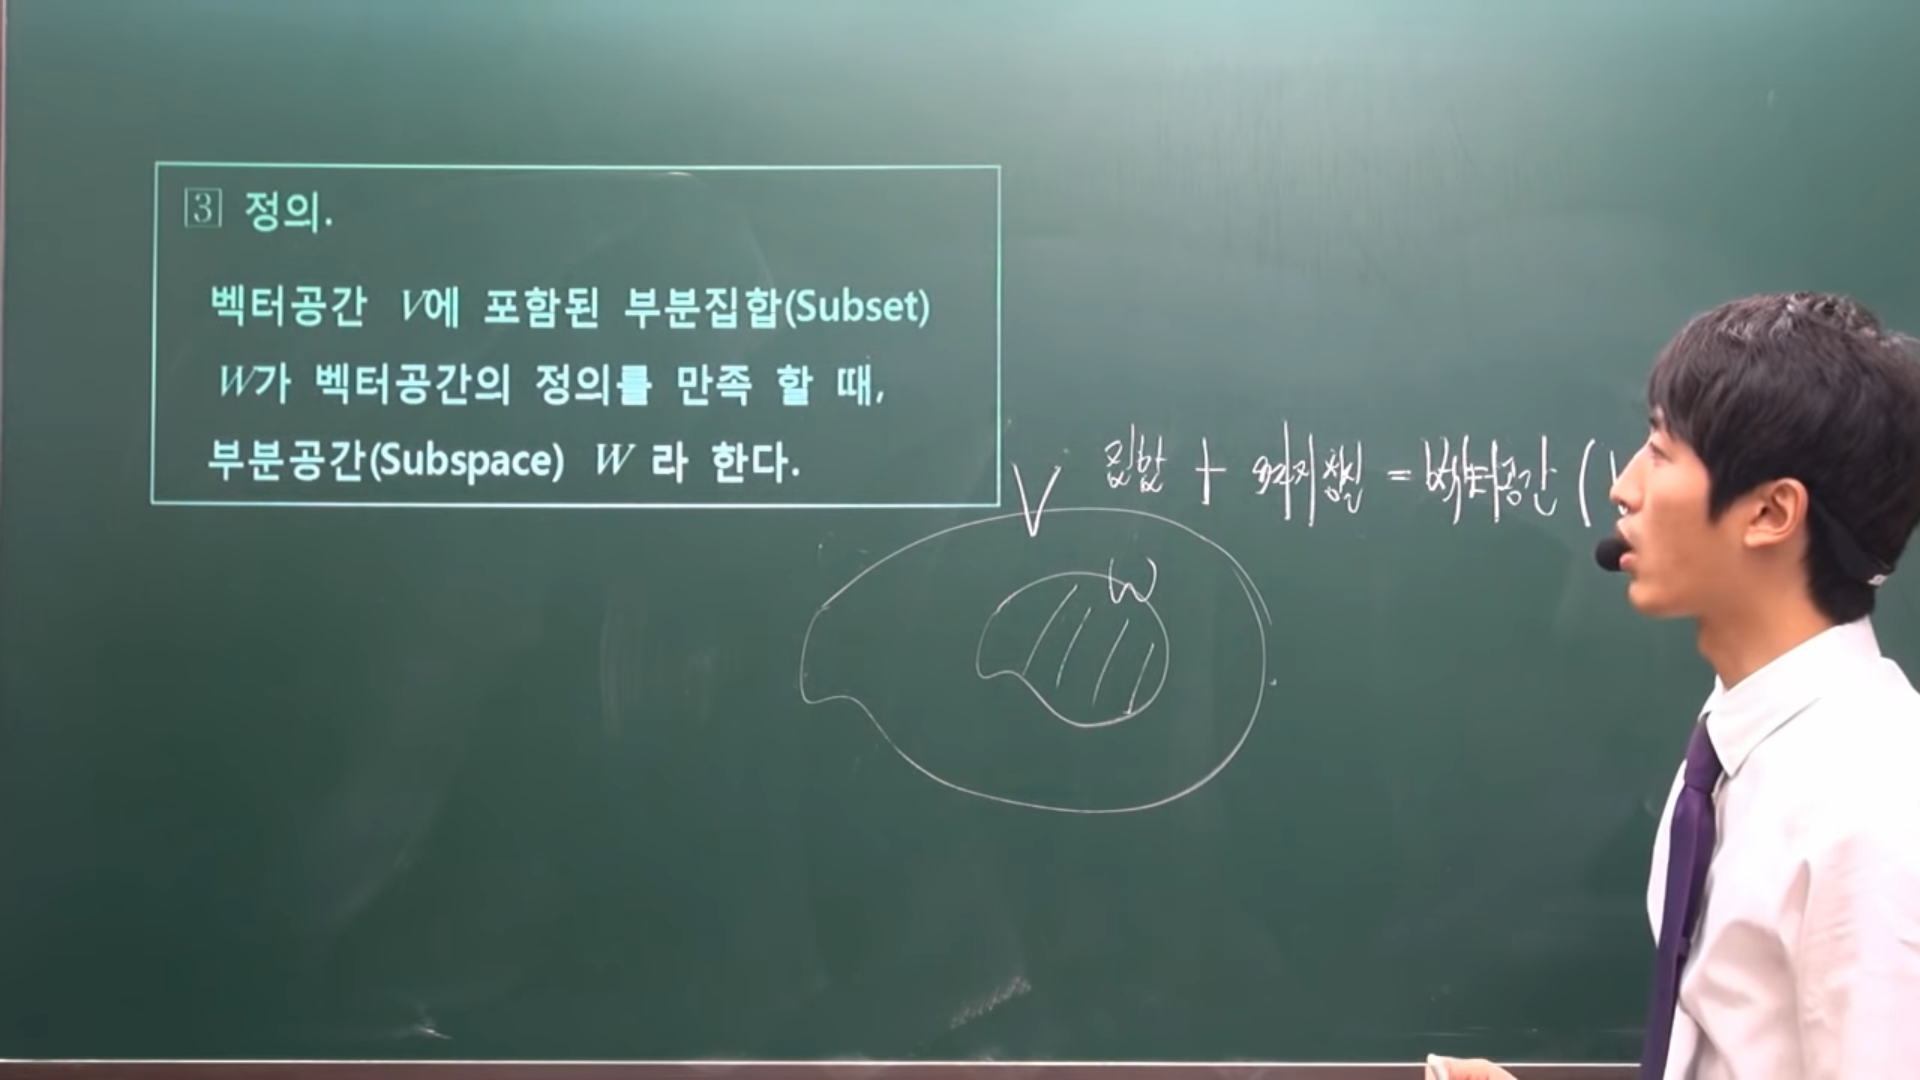 3 정의.
벡터공간 V에 포함된 부분집합(Subset)
W가 벡터공간의 정의를 만족 할 때,
부분공간(Subspace) W 라 한다.
집합 + 성질 = 벡터공간 (
V
W